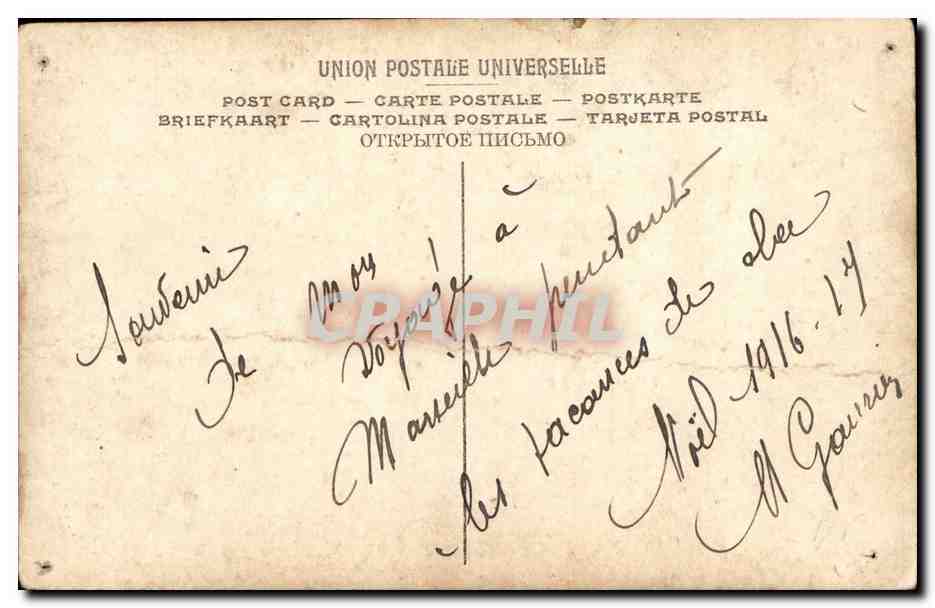 UNION POSTALE UNIVERSELLE
POST CARD — CARTE POSTALE — POSTKARTE
BRIEFKAART — CARTOLINA POSTALE — TARJETA POSTAL
ОТКРЫТОЕ ПИСЬМО
CRAPHIL
Souvenir
de mon
voyage à
Marseille pendant
les vacances de
Noël 1916-17
M